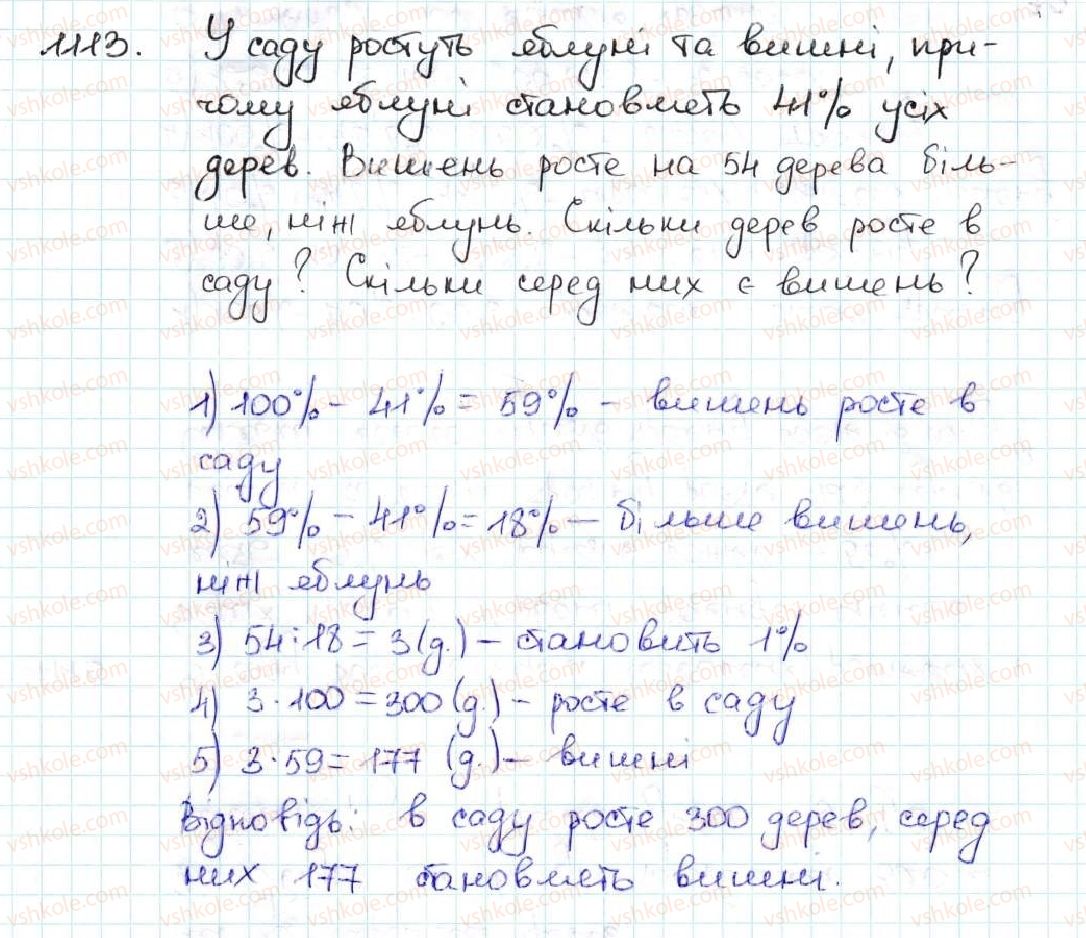 1113. У саду ростуть яблуні та вишні, при-
чому яблуні становлять 41% усіх
дерев. Вишень росте на 54 дерева біль-
ше, ніж яблунь. Скільки дерев росте в
саду? Скільки серед них є вишень?
1) 100% - 41% = 59% - вишень росте в
саду
2) 59% - 41% = 18% - більше вишень,
ніж яблунь
3) 54:18 = 3 (д.) - становить 1%
4) 3·100 = 300 (д.) - росте в саду
5) 3·59 = 177 (д.) - вишні
Відповідь: в саду росте 300 дерев, серед
них 177 становлять вишні.